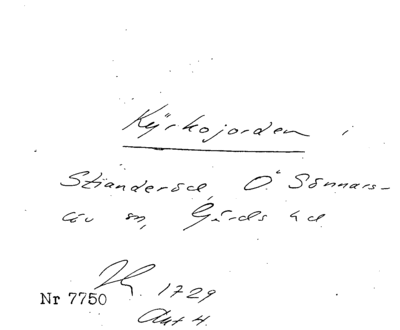 Kyrkojorden i
Stianderöd, Ö Sönnars-
löv sn, Gärds hd
Nr 7750 1729
Akt 4.